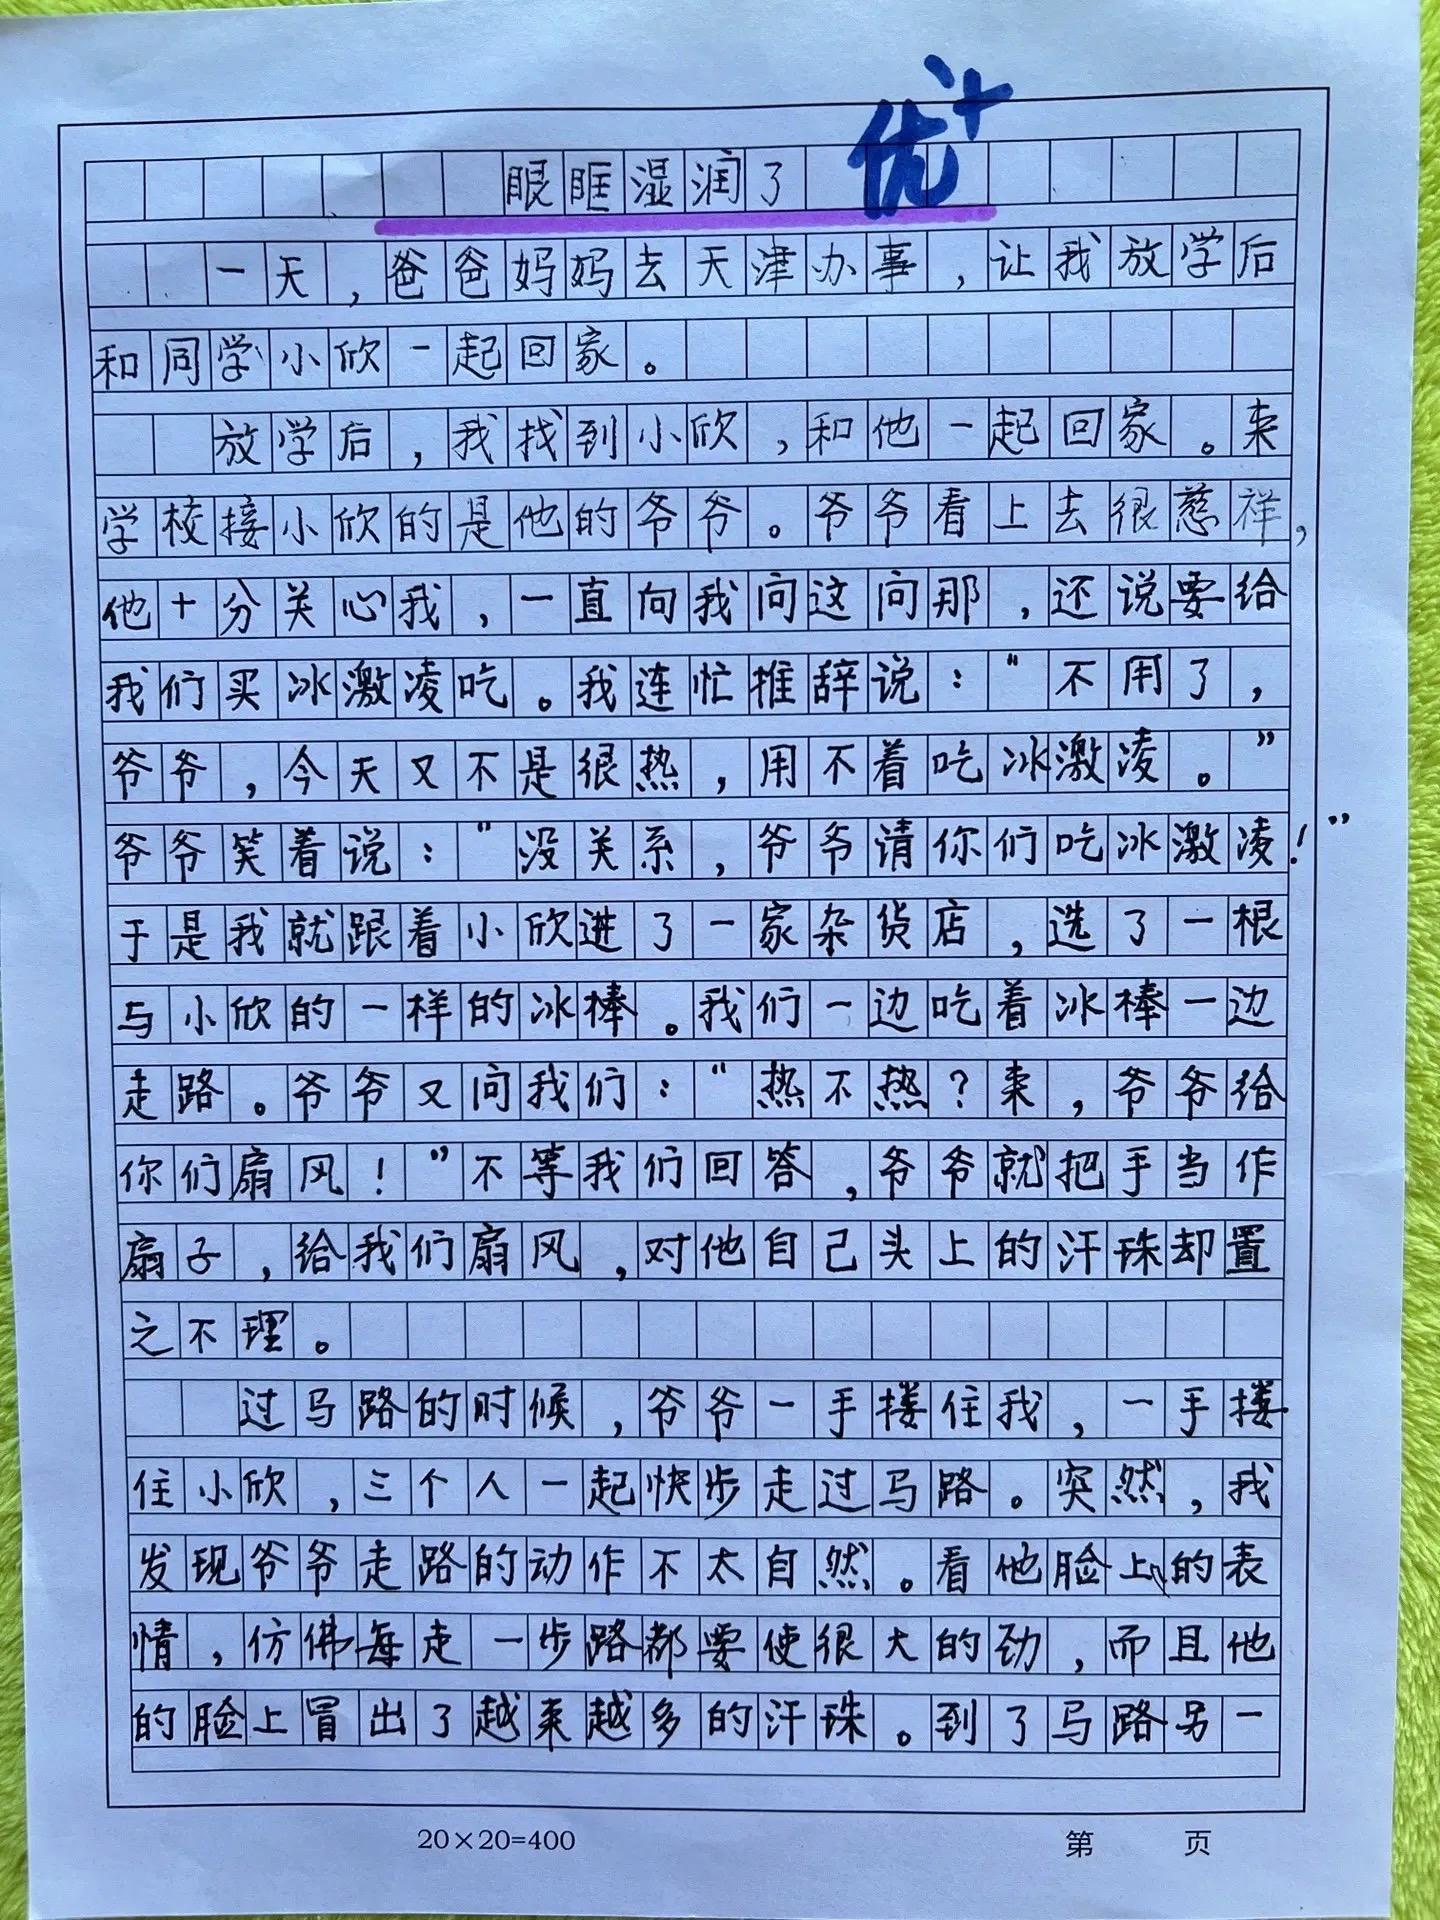 眼眶湿润了 优+
一天，爸爸妈妈去天津办事，让我放学后
和同学小欣一起回家。
放学后，我找到小欣，和他一起回家。来
学校接小欣的是他的爷爷。爷爷看上去很慈祥，
他十分关心我，一直向我问这问那，还说要给
我们买冰激凌吃。我连忙推辞说：“不用了，
爷爷，今天又不是很热，用不着吃冰激凌。”
爷爷笑着说：“没关系，爷爷请你们吃冰激凌！”
于是我就跟着小欣进了一家杂货店，选了一根
与小欣的一样的冰棒。我们一边吃着冰棒一边
走路。爷爷又问我们：“热不热？来，爷爷给
你们扇风！”不等我们回答，爷爷就把手当作
扇子，给我们扇风，对他自己头上的汗珠却置
之不理。
过马路的时候，爷爷一手搂住我，一手搂
住小欣，三个人一起快步走过马路。突然，我
发现爷爷走路的动作不太自然。看他脸上的表
情，仿佛每走一步路都要使很大的劲，而且他
的脸上冒出了越来越多的汗珠。到了马路另一
20×20=400 第 页